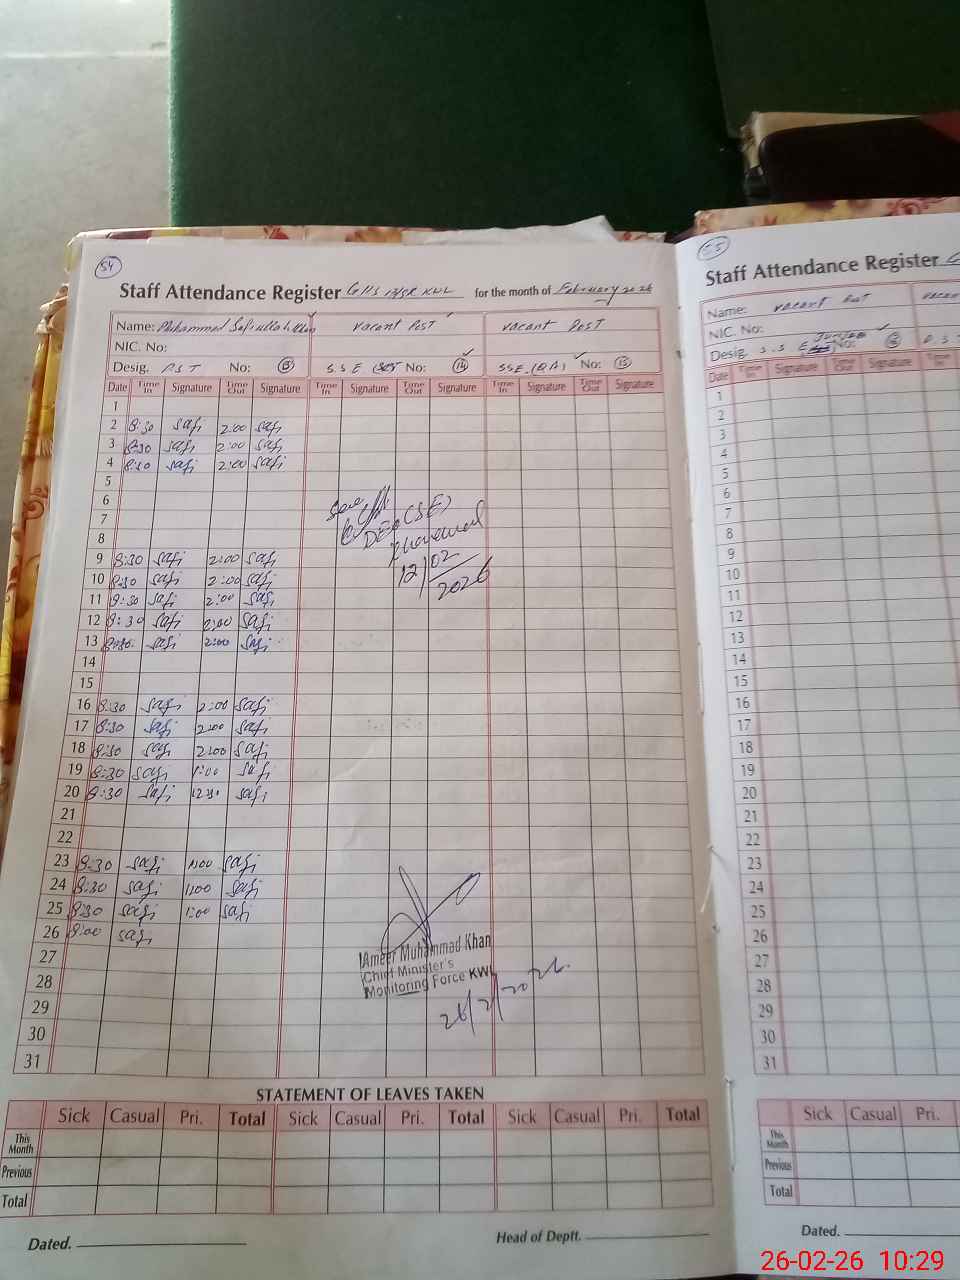 54
Staff Attendance Register GHS for the month of February 2026
Name: Muhammad Safiullah Khan Vacant Post Vacant Post
NIC. No:
Desig. PST No: 13 S.S.E No: 14 SSE. No: 15
Date Time In Signature Time Out Signature Time In Signature Time Out Signature Time In Signature Time Out Signature
1
2 8:30 Safi 2:00 Safi
3 8:30 Safi 2:00 Safi
4 8:30 Safi 2:00 Safi
5
6
7
8
9 8:30 Safi 2:00 Safi
10 8:30 Safi 2:00 Safi
11 8:30 Safi 2:00 Safi
12 8:30 Safi 2:00 Safi
13 8:30 Safi 2:00 Safi
14
15
16 8:30 Safi 2:00 Safi
17 8:30 Safi 2:00 Safi
18 8:30 Safi 2:00 Safi
19 8:30 Safi 1:00 Safi
20 8:30 Safi 12:30 Safi
21
22
23 8:30 Safi 1:00 Safi
24 8:30 Safi 1:00 Safi
25 8:30 Safi 1:00 Safi
26 8:00 Safi
27
28
29
30
31
Seen
DEO (SE)
Khanewal
12/02
2026
Ameer Muhammad Khan
Chief Minister's
Monitoring Force KWL
26/2/2026
STATEMENT OF LEAVES TAKEN
Sick Casual Pri. Total Sick Casual Pri. Total Sick Casual Pri. Total
This Month
Previous
Total
Dated. Head of Deptt.
55
Staff Attendance Register G
Name: Vacant Post Vacan
NIC. No:
Desig. S.S.E No: 16
Date Time In Signature Time Out Signature Time In
1
2
3
4
5
6
7
8
9
10
11
12
13
14
15
16
17
18
19
20
21
22
23
24
25
26
27
28
29
30
31
Sick Casual Pri.
This Month
Previous
Total
Dated.
26-02-26 10:29